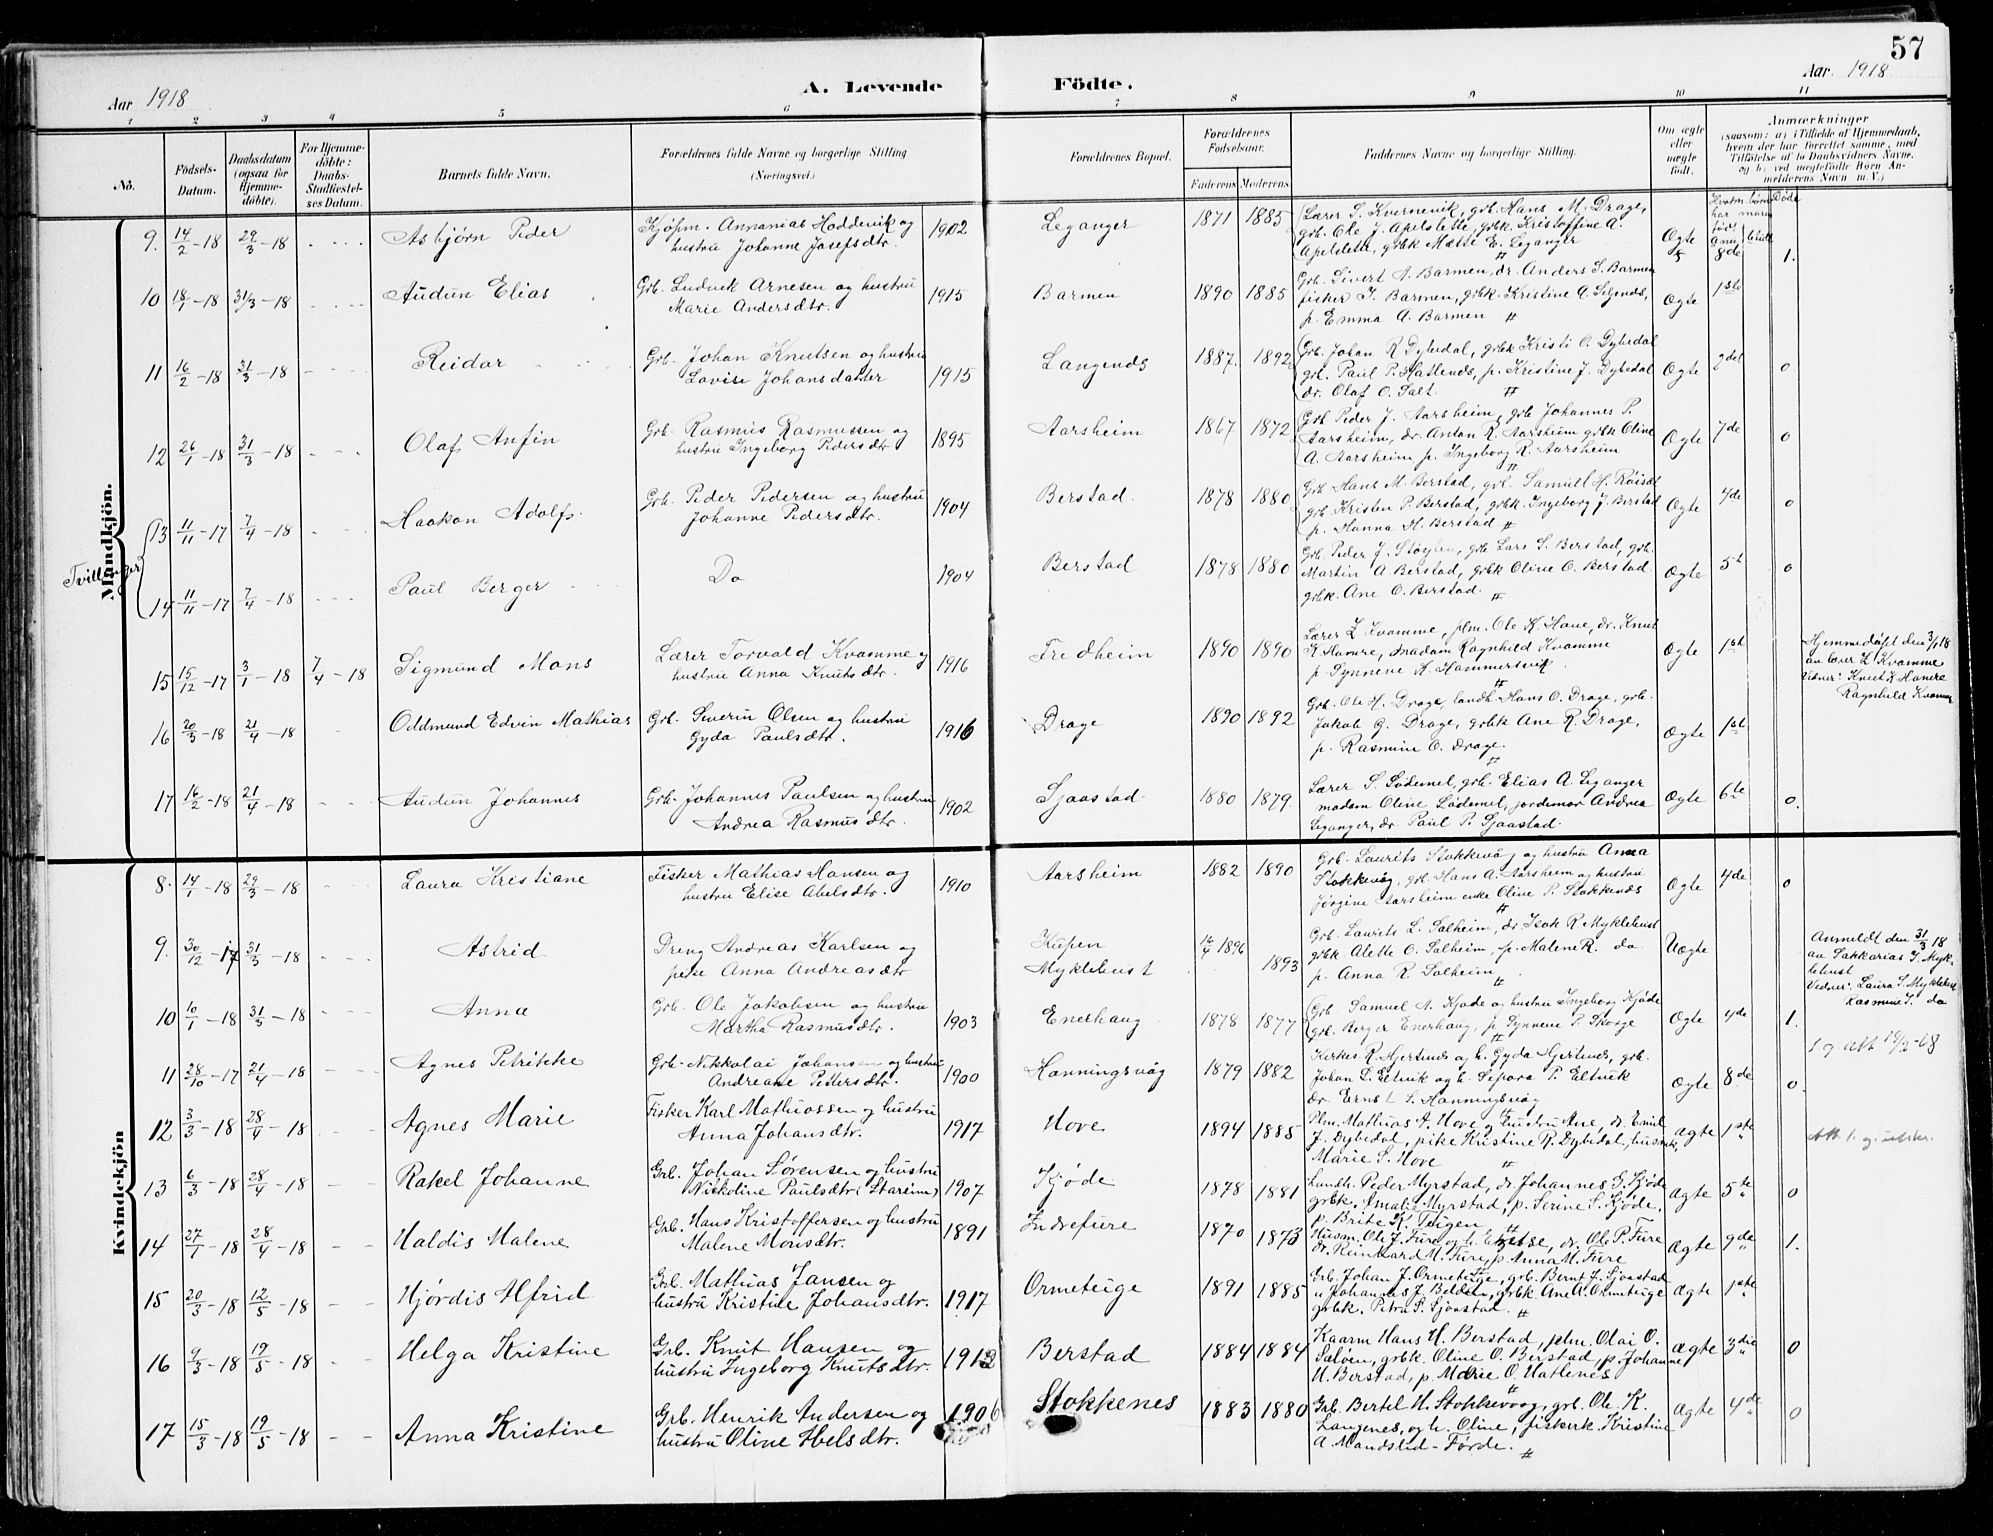 57
Aar 1918
A. Levende Födte.
Aar 1918
1 2 3 4 5 6 7 8 9 10 11
No.
Födsels-Datum.
Daabsdatum (ogsaa for Hjemme-döbte).
For Hjemme-döbte: Daabs-Stadfæstel-ses Datum.
Barnets fulde Navn.
Forældrenes fulde Navne og borgerlige Stilling (Næringsvei.)
Forældrenes Bopæl.
Forældrenes Födselsaar.
Faderens. Moderens.
Faddernes Navne og borgerlige Stilling.
Om ægte eller uægte födt.
Anmærkninger
(saasom: a) i Tilfælde af Hjemmedaab, hvem der har forrettet samme, med Tilföielse af to Daabsvidners Navne, og b) ved uægtefödte Börn An-melderens Navn m. V.)
Mandkjön.
9. 14/2-18 29/3-18 Asbjørn Peder Kjøpm. Annanias Hoddevik og hustru Johanne Josefsdtr. 1902 Leganger 1871 1885 Lærer S. Kvernevik, grb. Hans M. Drage, grb. Ole J. Apelslette, grbk. Kristoffine A. Apelslette, grbk Mette E. Leganger Ægte 8de 1.
10 18/1-18 31/3-18 Audun Elias Grb. Ludvik Arnesen og hustru Marie Andersdtr. 1915 Barmen 1890 1885 Grb. Sivert A. Barmen, dr. Anders S. Barmen fisker J. Barmen, grbk. Kristine A. Seljenes, p. Emma A. Barmen Ægte 1ste
11 16/2-18 31/3-18 Reidar Grb. Johan Knutsen og hustru Lovise Johansdatter 1915 Langenes 1887. 1892 Grb. Johan R Dybedal, grbk Kristi O. Dybedal grb. Paul P. Hatlenes, p. Kristine J. Dybedal dr. Olaf O. Salt. Ægte 2det 0
12 26/1-18 31/3-18 Olaf Anfin Grb. Rasmus Rasmussen og hustru Ingeborg Pedersdtr 1895 Aarsheim 1867 1872 Grb Peder J. Aarsheim, grb Johannes P. Aarsheim, dr. Anton R. Aarsheim grbk Oline A. Aarsheim p. Ingeborg R. Aarsheim Ægte 7de 0
Tvillinger
13 11/11-17 7/4-18 Haakon Adolf Grb. Peder Pedersen og hustru Johanne Pedersdtr. 1904 Berstad. 1878 1880 Grb Hans M. Berstad, grb. Samuel H. Röiset grb Kristen P. Berstad, grbk. Ingeborg J. Berstad p. Hanna H. Berstad Ægte 4de 0
14 11/11-17 7/4-18 Paul Berger Do 1904 Berstad 1878 1880 Grb. Peder J. Støylen, grb Lars S. Berstad, grb. Martin A Berstad, grbk Oline O. Berstad grbk. Ane O. Berstad. Ægte 5t 0
15 15/12-17 3/1-18 7/4-18 Sigmund Mons Lærer Torvald Kvamme og hustru Anna Knutsdtr. 1916 Fredheim 1890 1890 Lærer Z Kvamme, plm. Ole H. Hane, dr. Knut K Hamre, madam Ragnhild Kvamme p. Synneve H. Hammersvik Ægte 1st Hjemmedøpt den 3/1 18 av lærer Z Kvamme Vidner: Knut K Hamre Ragnhild Kvamme
16 20/3-18 21/4-18 Oddmund Edvin Mathias Grb. Severin Olsen og hustru Gyda Paulsdtr. 1916 Drage 1890 1892 Grb. Ole H. Drage, landh. Hans O. Drage, grb. Jakob G. Drage, grbk Ane R. Drage, p. Rasmine O. Drage. Ægte 1st
17 16/2-18 21/4-18 Audun Johannes Grb. Johannes Paulsen og hustru Andrea Rasmusdtr. 1902 Sjaastad 1880 1879. Lærer S. Lødemel, grb. Elias A. Leganger madam Oline Lødemel, jordemor Andrea Leganger, dr. Paul P. Sjaastad. Ægte 6te 0.
Kvindekjön
8. 14/1-18 29/3-18 Laura Kristiane Fisker Mathias Hansen og hustru Elise Abelsdtr. 1910 Aarsheim 1882 1890 Grb. Laurits Stokkevåg og hustru Anna Stokkevåg, grb. Hans A. Aarsheim og hustru Jørgine Aarsheim enke Oline P. Stokkenes Ægte 4de 0
9. 30/12-17 31/3-18 Astrid Dreng Andreas Karlsen og pike Anna Andreasdtr Kupen Myklebust 1896 1893 Grb. Laurits L. Solheim, dr Isak R. Myklebust grbk Alette O. Solheim, p. Malene R. do p. Anna R. Solheim Uægte Anmeldt den 31/3 18 av Sakkarias S. Myklebust Vidner: Laura S. Myklebust Rasmine S. do
10 10/1-18 31/3-18 Anna Grb. Ole Jakobsen og hustru Martha Rasmusdtr. 1903 Enerhaug 1878 1877 Grb Samuel A. Kjøde og hustru Ingeborg Kjøde grb. Berger Enerhaug, p Synneve P. Skorge Ægte 4de 1.
11 28/10-17 21/4-18 Agnes Petrikke Grb. Nikkolai Johansen og hustru Andreane Pettersdtr. 1900 Honningsvåg 1879 1882 Kirkes R. Hjertenes og h. Gyda Hjertenes, grb. Johan L. Eltvik og h. Sepora P. Eltvik dr. Ernst S. Honningsvåg Ægte 8de 0.
12 3/3-18 28/4-18 Agnes Marie Fisker Karl Mathiassen og hustru Anna Johansdtr. 1917 Hove 1894 1885 Plm. Mathias A. Hove og hustru Ane, dr. Emil J. Dybedal, pike Kristine R. Dybedal, husmk. Marie S. Hove Ægte 1ste
13 6/3-18 28/4-18 Rakel Johanne Grb. Johan Sørensen og hustru Nikoline Paulsdtr (Stareim) 1907 Kjøde 1878 1881 Landh. Peder Myrstad, dr. Johannes G. Kjøde grbk. Amalie Myrstad, p. Serine S. Kjøde, p. Brite K. Teigen Ægte 5te 0
14 27/1-18 28/4-18 Haldis Malene Grb. Hans Kristoffersen og hustru Malene Monsdtr. 1891 Indrefure 1870 1873 Husm. Ole J. Fure og h. Elise, dr. Ole P. Fure dr. Reinhard M. Fure, p. Anna M. Fure Ægte 9de 1.
15 20/3-18 12/5-18 Hjørdis Alfrid Grb. Mathias Jansen og hustru Kristine Johansdtr. 1917 Ormeteige 1891 1885 Grb. Johan J. Ormeteige, grb. Bernt J. Sjaastad u Johannes J Belden, grbk Ane A. Ormteige grbk. Petra S. Sjaastad. Ægte 1ste
16 9/3-18 19/5-18 Helga Kristine Grb. Knut Hansen og hustru Ingeborg Knutsdtr. 1912 Berstad 1884 1884 Kaarm Hans H. Berstad, plm. Olai O. Saløen, grbk. Oline O. Berstad, p. Johanne H. Berstad, p. Marie O. Hatlenes Ægte 3die 0
17 15/3-18 19/5-18 Anna Kristine Grb. Henrik Andersen og hustru Oline Abelsdtr. 1906 Stokkenes 1883 1880 Grb. Bertel H. Stokkevåg, grb. Ole K. Langenes, og h. Oline, fiskerk. Kristine A. Mandstad-Førde. Ægte 4de 0